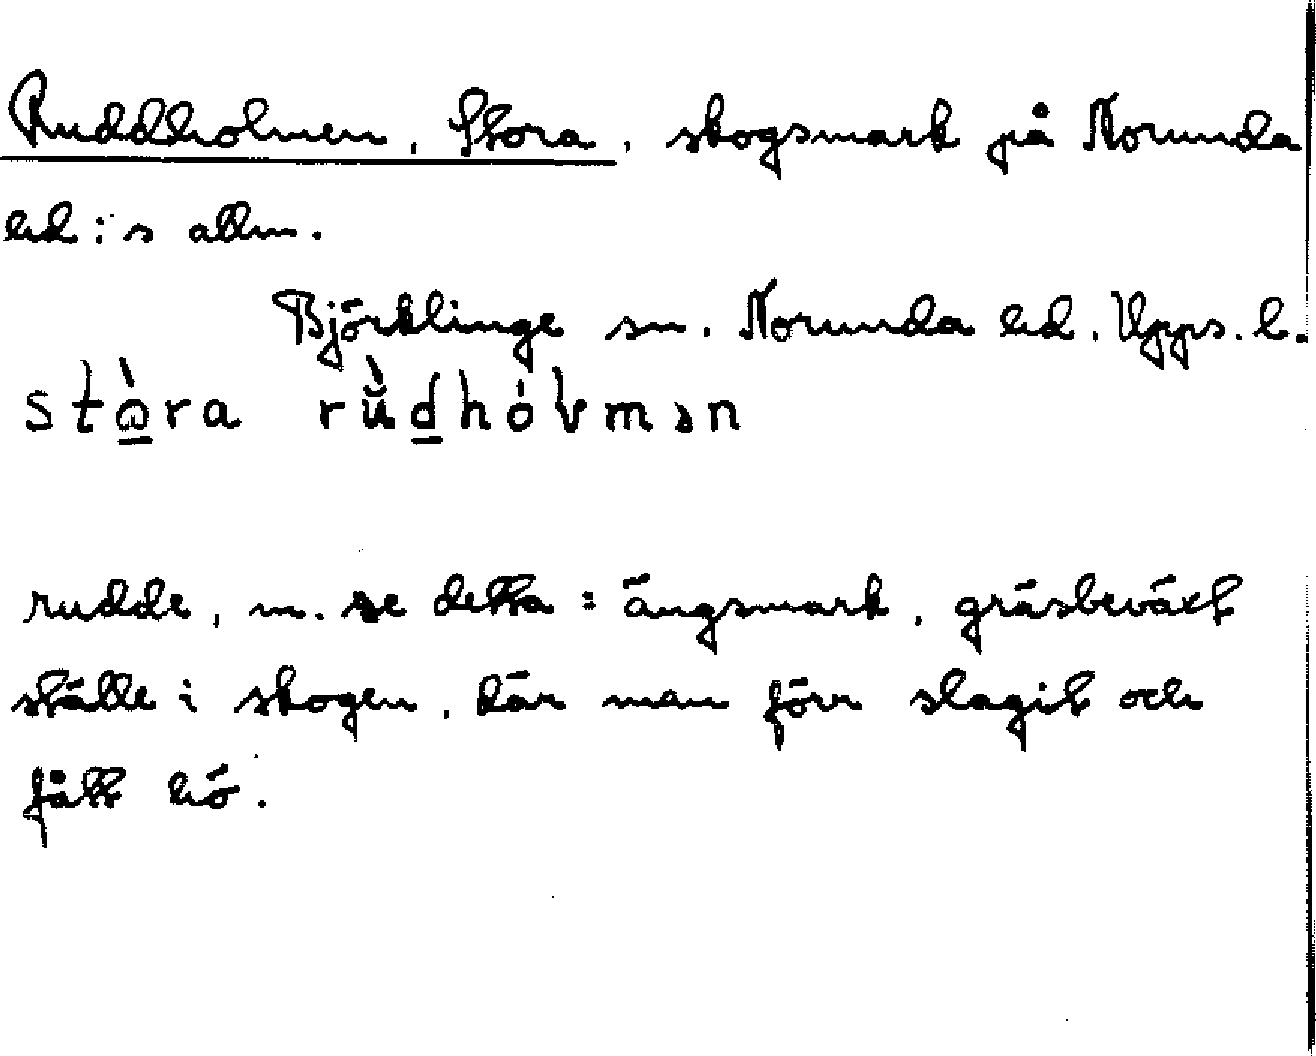 Ruddholmen, Stora, skogsmark på Norunda
hd:s allm.
Björklinge sn. Norunda hd. Upps. l.
stὼ̲ra rǜd̲hóvmən
rudde, m. se detta = ängsmark, gräsbeväxt
ställe i skogen, där man förr slagit och
fått hö.